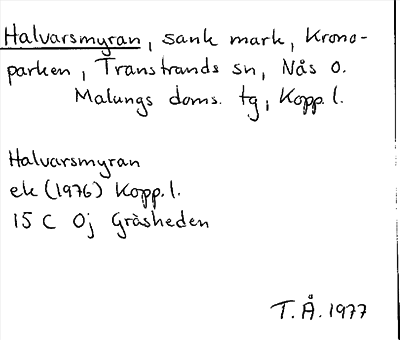 Halvarsmyran, sank mark, Krono-
parken, Transtrands sn, Nås o.
Malungs doms. tg, Kopp. l.
Halvarsmyran
ek (1976) Kopp. l.
15 C Oj Gråsheden
T. Å. 1977